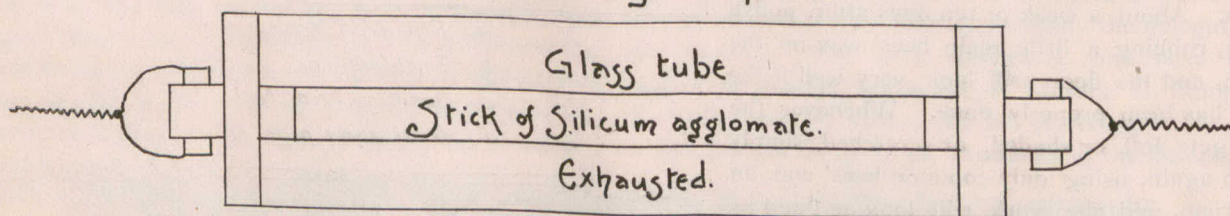 Glass tube
Stick of Silicum agglomate.
Exhausted.